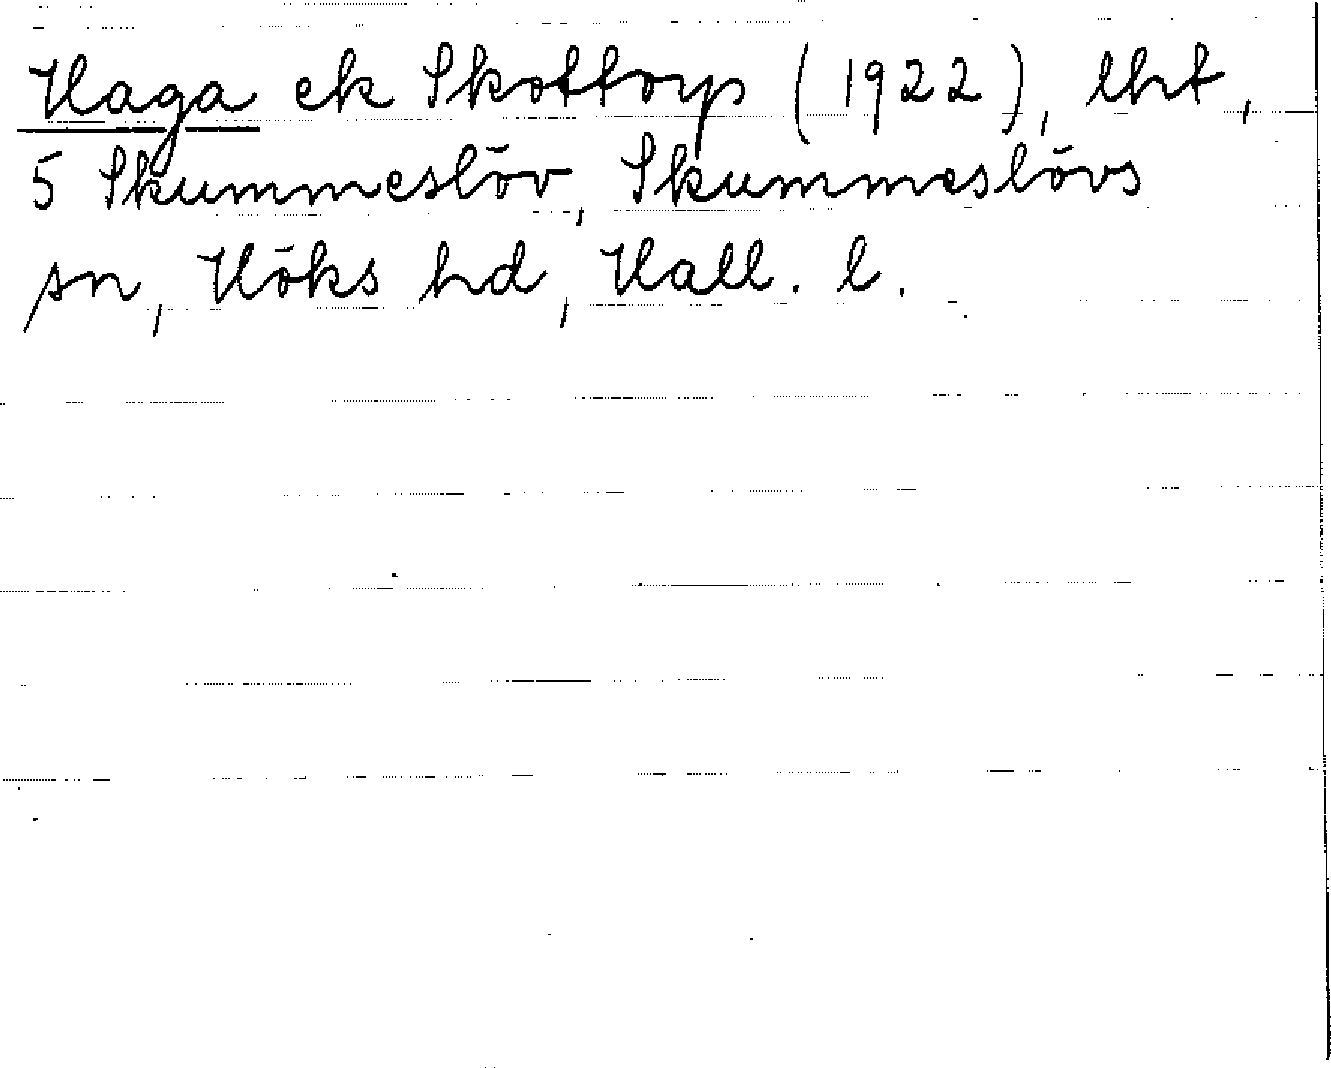 Haga ek Skottorp (1922), lht,
5 Skummeslöv, Skummeslövs
sn, Höks hd, Hall. l.